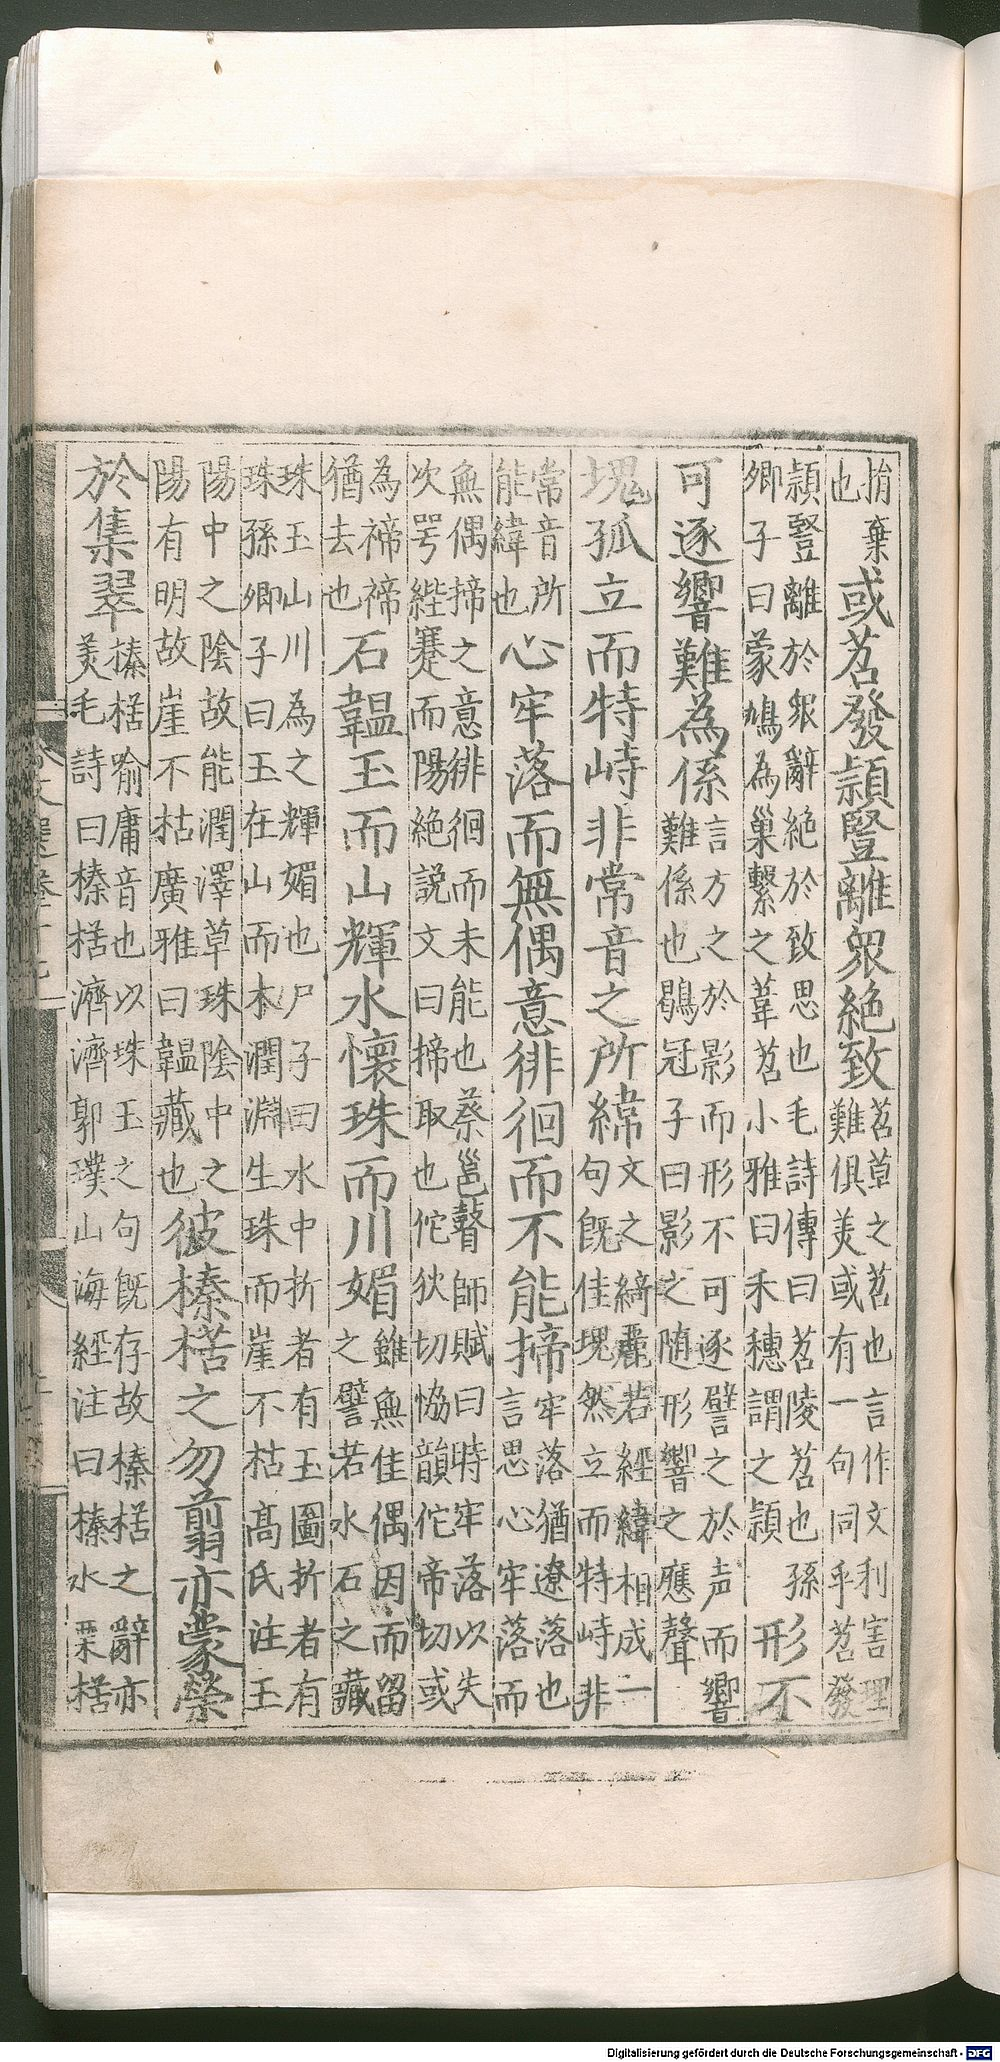 捐棄也或苕發頴豎離衆絶致苕草之苕也言作文利害理難俱美或有一句同乎苕發
頴豎離於衆辭絶於致思也毛詩傳曰苕陵苕也孫卿子曰蒙鳩為巢繫之葦苕小雅曰禾穗謂之頴形不
可逐響難為係言方之於影而形不可逐譬之於声而響難係也鶡冠子曰影之隨形響之應聲
塊孤立而特峙非常音之所緯文之綺麗若經緯相成二句既佳塊然立而特峙非
常音所能緯也心牢落而無偶意徘徊而不能揥牢落猶遼落也言思心牢落而
無偶揥之意徘徊而未能也蔡邕瞽師賦曰時牢落以失次咢䋽蹇而陽絶説文曰揥取也佗狄切協韻佗帝切或
為禘禘猶去也石韞玉而山輝水懷珠而川媚雖無佳偶因而留之譬若水石之藏
珠玉山川為之輝媚也尸子曰水中折者有玉圖折者有珠孫卿子曰玉在山而木潤淵生珠而崖不枯高氏注玉
陽中之陰故能潤澤草珠陰中之陽有明故崖不枯廣雅曰韞藏也彼榛楛之勿翦亦蒙榮
於集翠榛楛喻庸音也以珠玉之句既存故榛楛之辭亦美毛詩曰榛楛濟濟郭璞山海經注曰榛水栗楛
文選卷十七
Digitalisierung gefördert durch die Deutsche Forschungsgemeinschaft - DFG